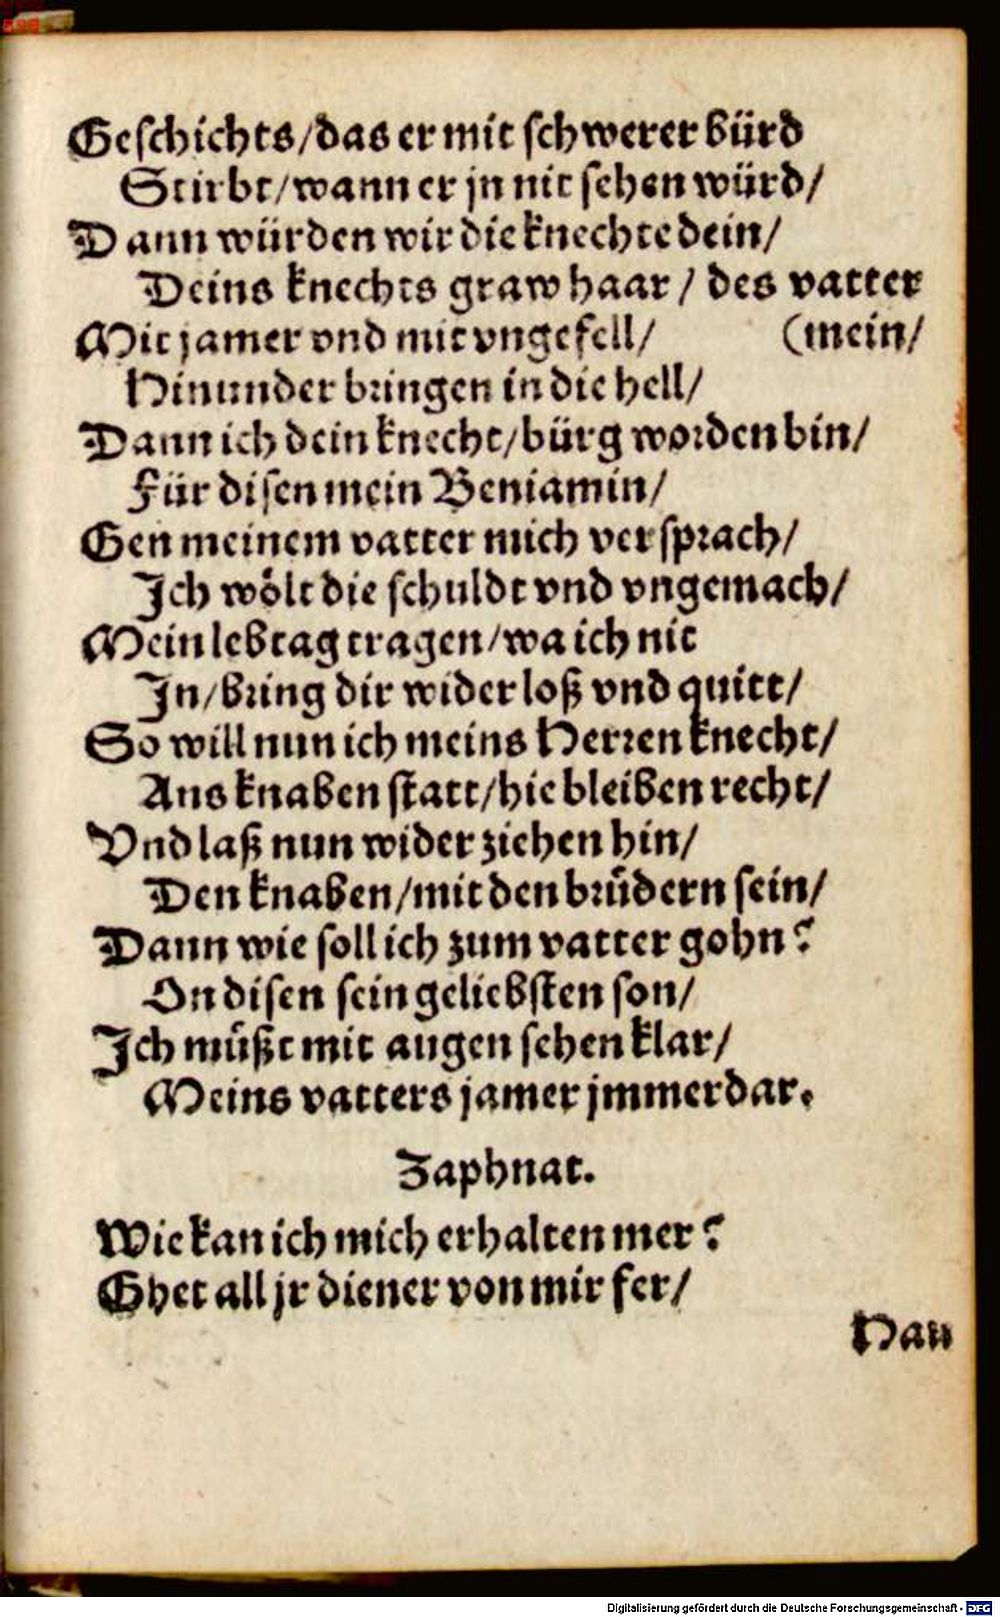 Geschichts/das er mit schwerer bürd
Stirbt/wann er jn nit sehen würd/
Dann würden wir die knechte dein/
Deins knechts graw haar/ des vatter
Mit jamer vnd mit vngefell/ (mein/
Hinunder bringen in die hell/
Dann ich dein knecht/bürg worden bin/
Für disen mein Beniamin/
Gen meinem vatter mich versprach/
Ich wölt die schuldt vnd vngemach/
Mein lebtag tragen/wa ich nit
In/bring dir wider loß vnd quitt/
So will nun ich meins Herren knecht/
Ans knaben statt/hie bleiben recht/
Vnd laß nun wider ziehen hin/
Den knaben/mit den brůdern sein/
Dann wie soll ich zum vatter gohn?
On disen sein geliebsten son/
Ich můßt mit augen sehen klar/
Meins vatters jamer jmmerdar.
Zaphnat.
Wie kan ich mich erhalten mer?
Ghet all jr diener von mir fer/
Nau
Digitalisierung gefördert durch die Deutsche Forschungsgemeinschaft - DFG